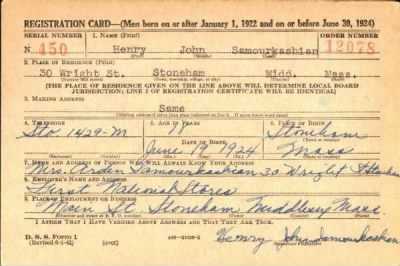 REGISTRATION CARD—(Men born on or after January 1, 1922 and on or before June 30, 1924)
SERIAL NUMBER 1. NAME (Print) ORDER NUMBER
N 450 Henry John Samourkashian 12078
(First) (Middle) (Last)
2. PLACE OF RESIDENCE (Print)
30 Wright St. Stoneham Midd. Mass.
(Number and street) (Town, township, village, or city) (County) (State)
[THE PLACE OF RESIDENCE GIVEN ON THE LINE ABOVE WILL DETERMINE LOCAL BOARD
JURISDICTION; LINE 2 OF REGISTRATION CERTIFICATE WILL BE IDENTICAL]
3. MAILING ADDRESS
Same
[Mailing address if other than place indicated on line 2. If same insert word same]
4. TELEPHONE 5. AGE IN YEARS 6. PLACE OF BIRTH
Sto. 1429-M 18 Stoneham
DATE OF BIRTH
June 19 1924 Mass
7. NAME AND ADDRESS OF PERSON WHO WILL ALWAYS KNOW YOUR ADDRESS
Mrs. Arden Samourkashian 30 Wright Stoneham
8. EMPLOYER'S NAME AND ADDRESS
First National Stores
9. PLACE OF EMPLOYMENT OR BUSINESS
Main St. Stoneham Middlesex Mass
(Number and street or R. F. D. number) (Town) (County) (State)
I AFFIRM THAT I HAVE VERIFIED ABOVE ANSWERS AND THAT THEY ARE TRUE.
D. S. S. Form 1
(Revised 6-1-42) Henry John Samourkashian